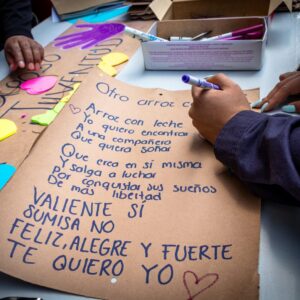 Otro arroz c
Arroz con leche
Yo quiero encontrar
A una compañera
Que quiera soñar
Que crea en sí misma
Y salga a luchar
Por conquistar sus sueños
De más libertad
VALIENTE SÍ
SUMISA NO
FELIZ, ALEGRE Y FUERTE
TE QUIERO YO